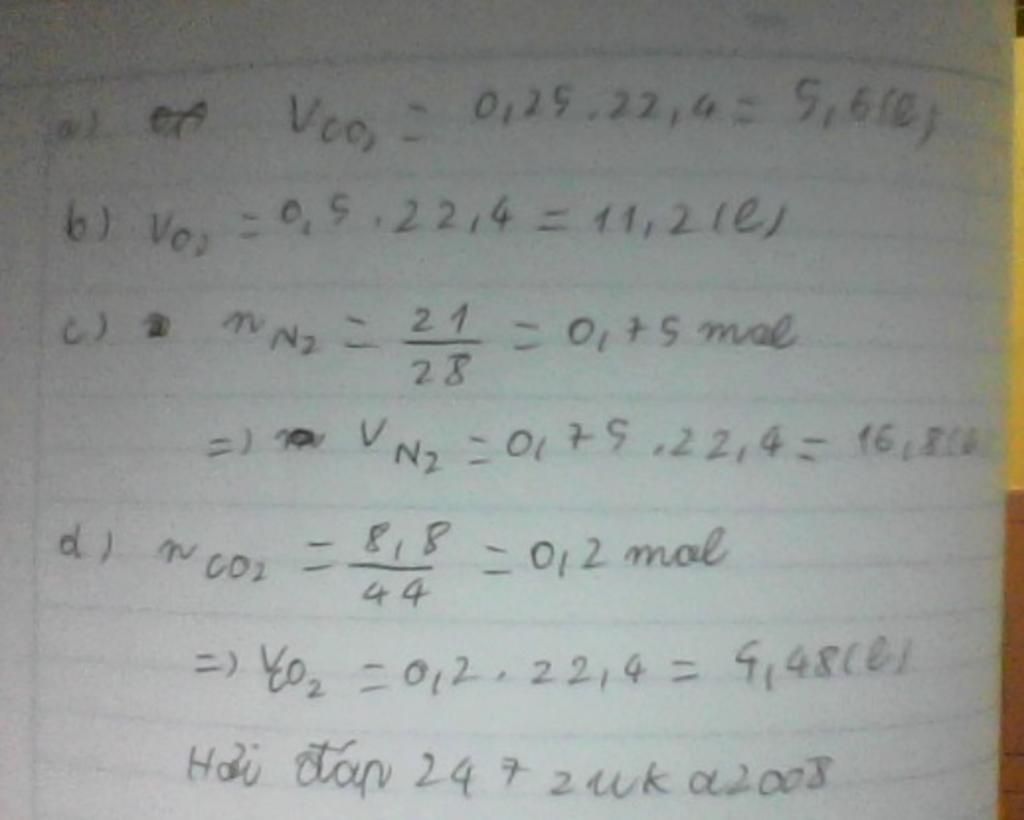 a) V CO₂ = 0,25 . 22,4 = 5,6 (l)
b) V O₂ = 0,5 . 22,4 = 11,2 (l)
c) n N₂ = 21/28 = 0,75 mol
=) V N₂ = 0,75 . 22,4 = 16,8 (l
d) n CO₂ = 8,8/44 = 0,2 mol
=) V CO₂ = 0,2 . 22,4 = 4,48 (l)
Hỏi đáp 247 zuka2008